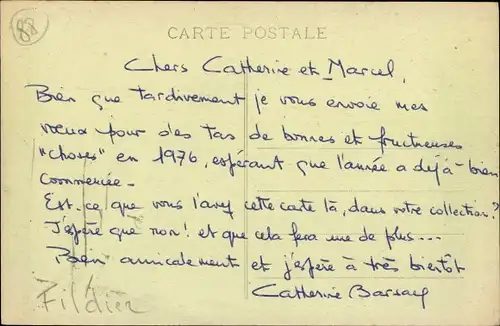 88
CARTE POSTALE
Chers Catherine et Marcel,
Bien que tardivement je vous envoie mes
vœux pour des tas de bonnes et fructueuses
"choses" en 1976, espérant que l'année a déjà bien
commencée.
Est-ce que vous l'avez cette carte là, dans votre collection?
J'espère que non! et que cela fera une de plus...
Bien amicalement et j'espère à très bientôt
Catherine
Fildier